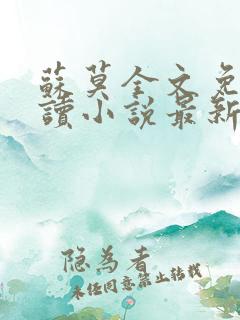 蘇莫全文免
讀小說最新
隐為者
未径同意禁止转载